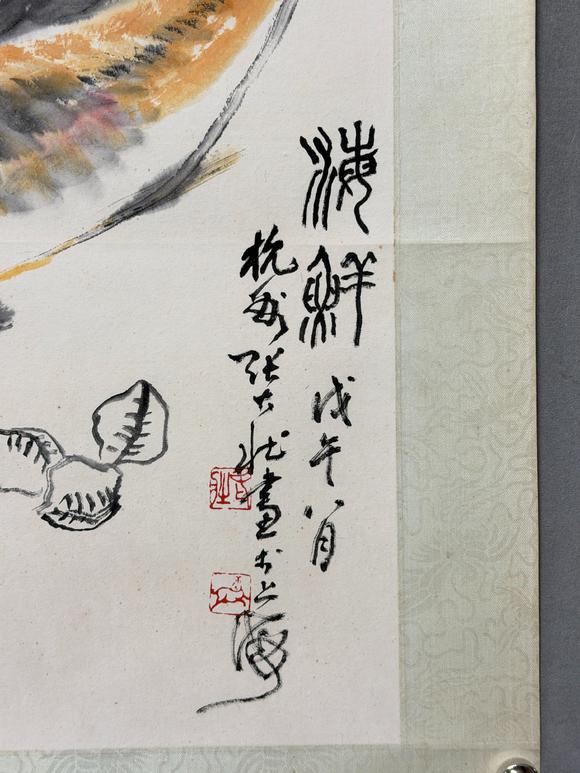 海鮮 戊午八月
杭州張大壯畫於上海